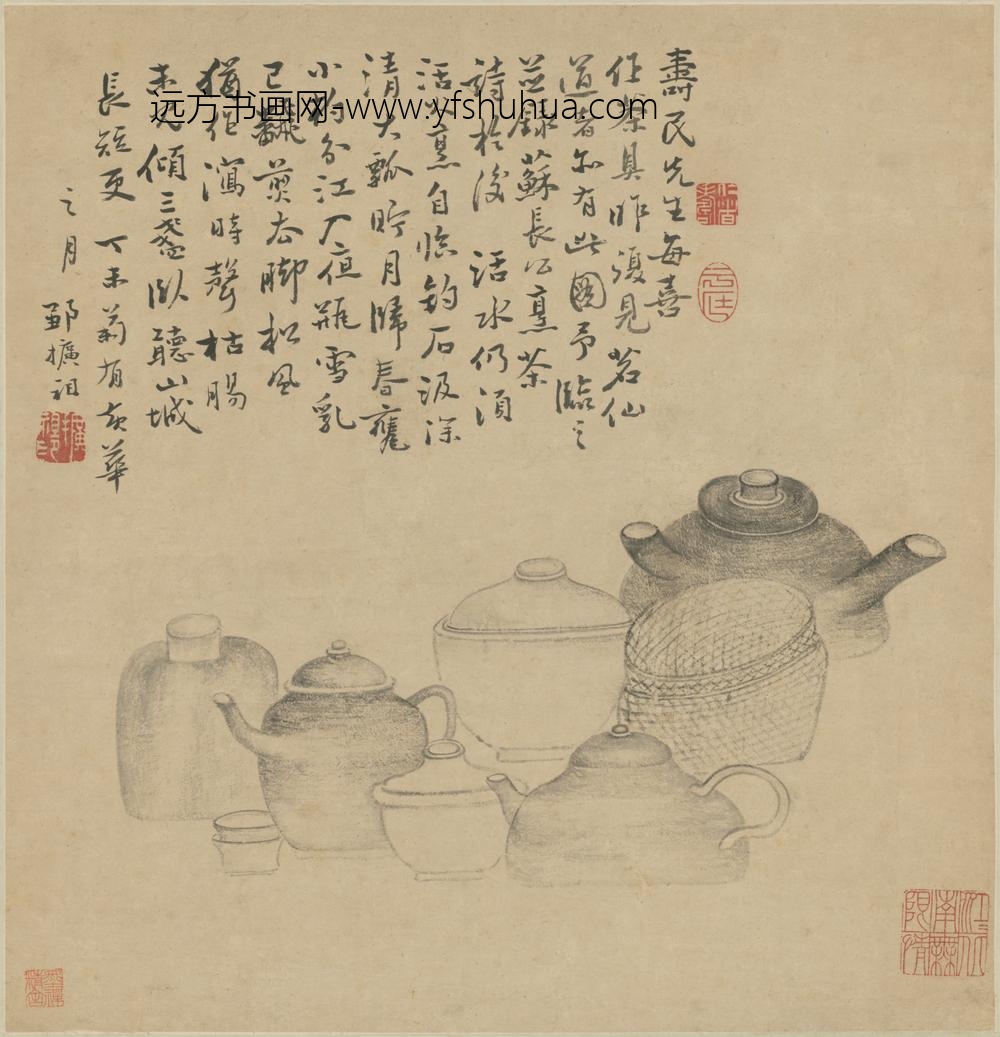 壽民先生每喜
作茶具昨復見茗仙
道者亦有此圖予臨之
並錄蘇長公烹茶
詩於後 活水仍須
活火烹自臨釣石汲深
清大瓢貯月歸春甕
小杓分江入夜瓶雪乳
已翻煎處脚松風
猶作瀉時聲枯腸
未免傾三盞臥聽山城
長短更 丁未菊有黃華
之月 鄒擴祖
远方书画网-www.yfshuhua.com